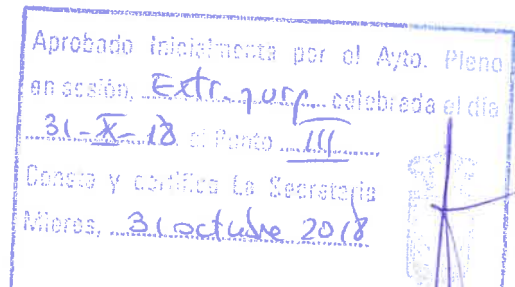 Aprobado Inicialmente por el Ayto. Pleno
en sesión, Extr. y urg. celebrada el día
31-X-18 al Punto III
Consta y certifica La Secretaria
Mieres, 31 octubre 2018